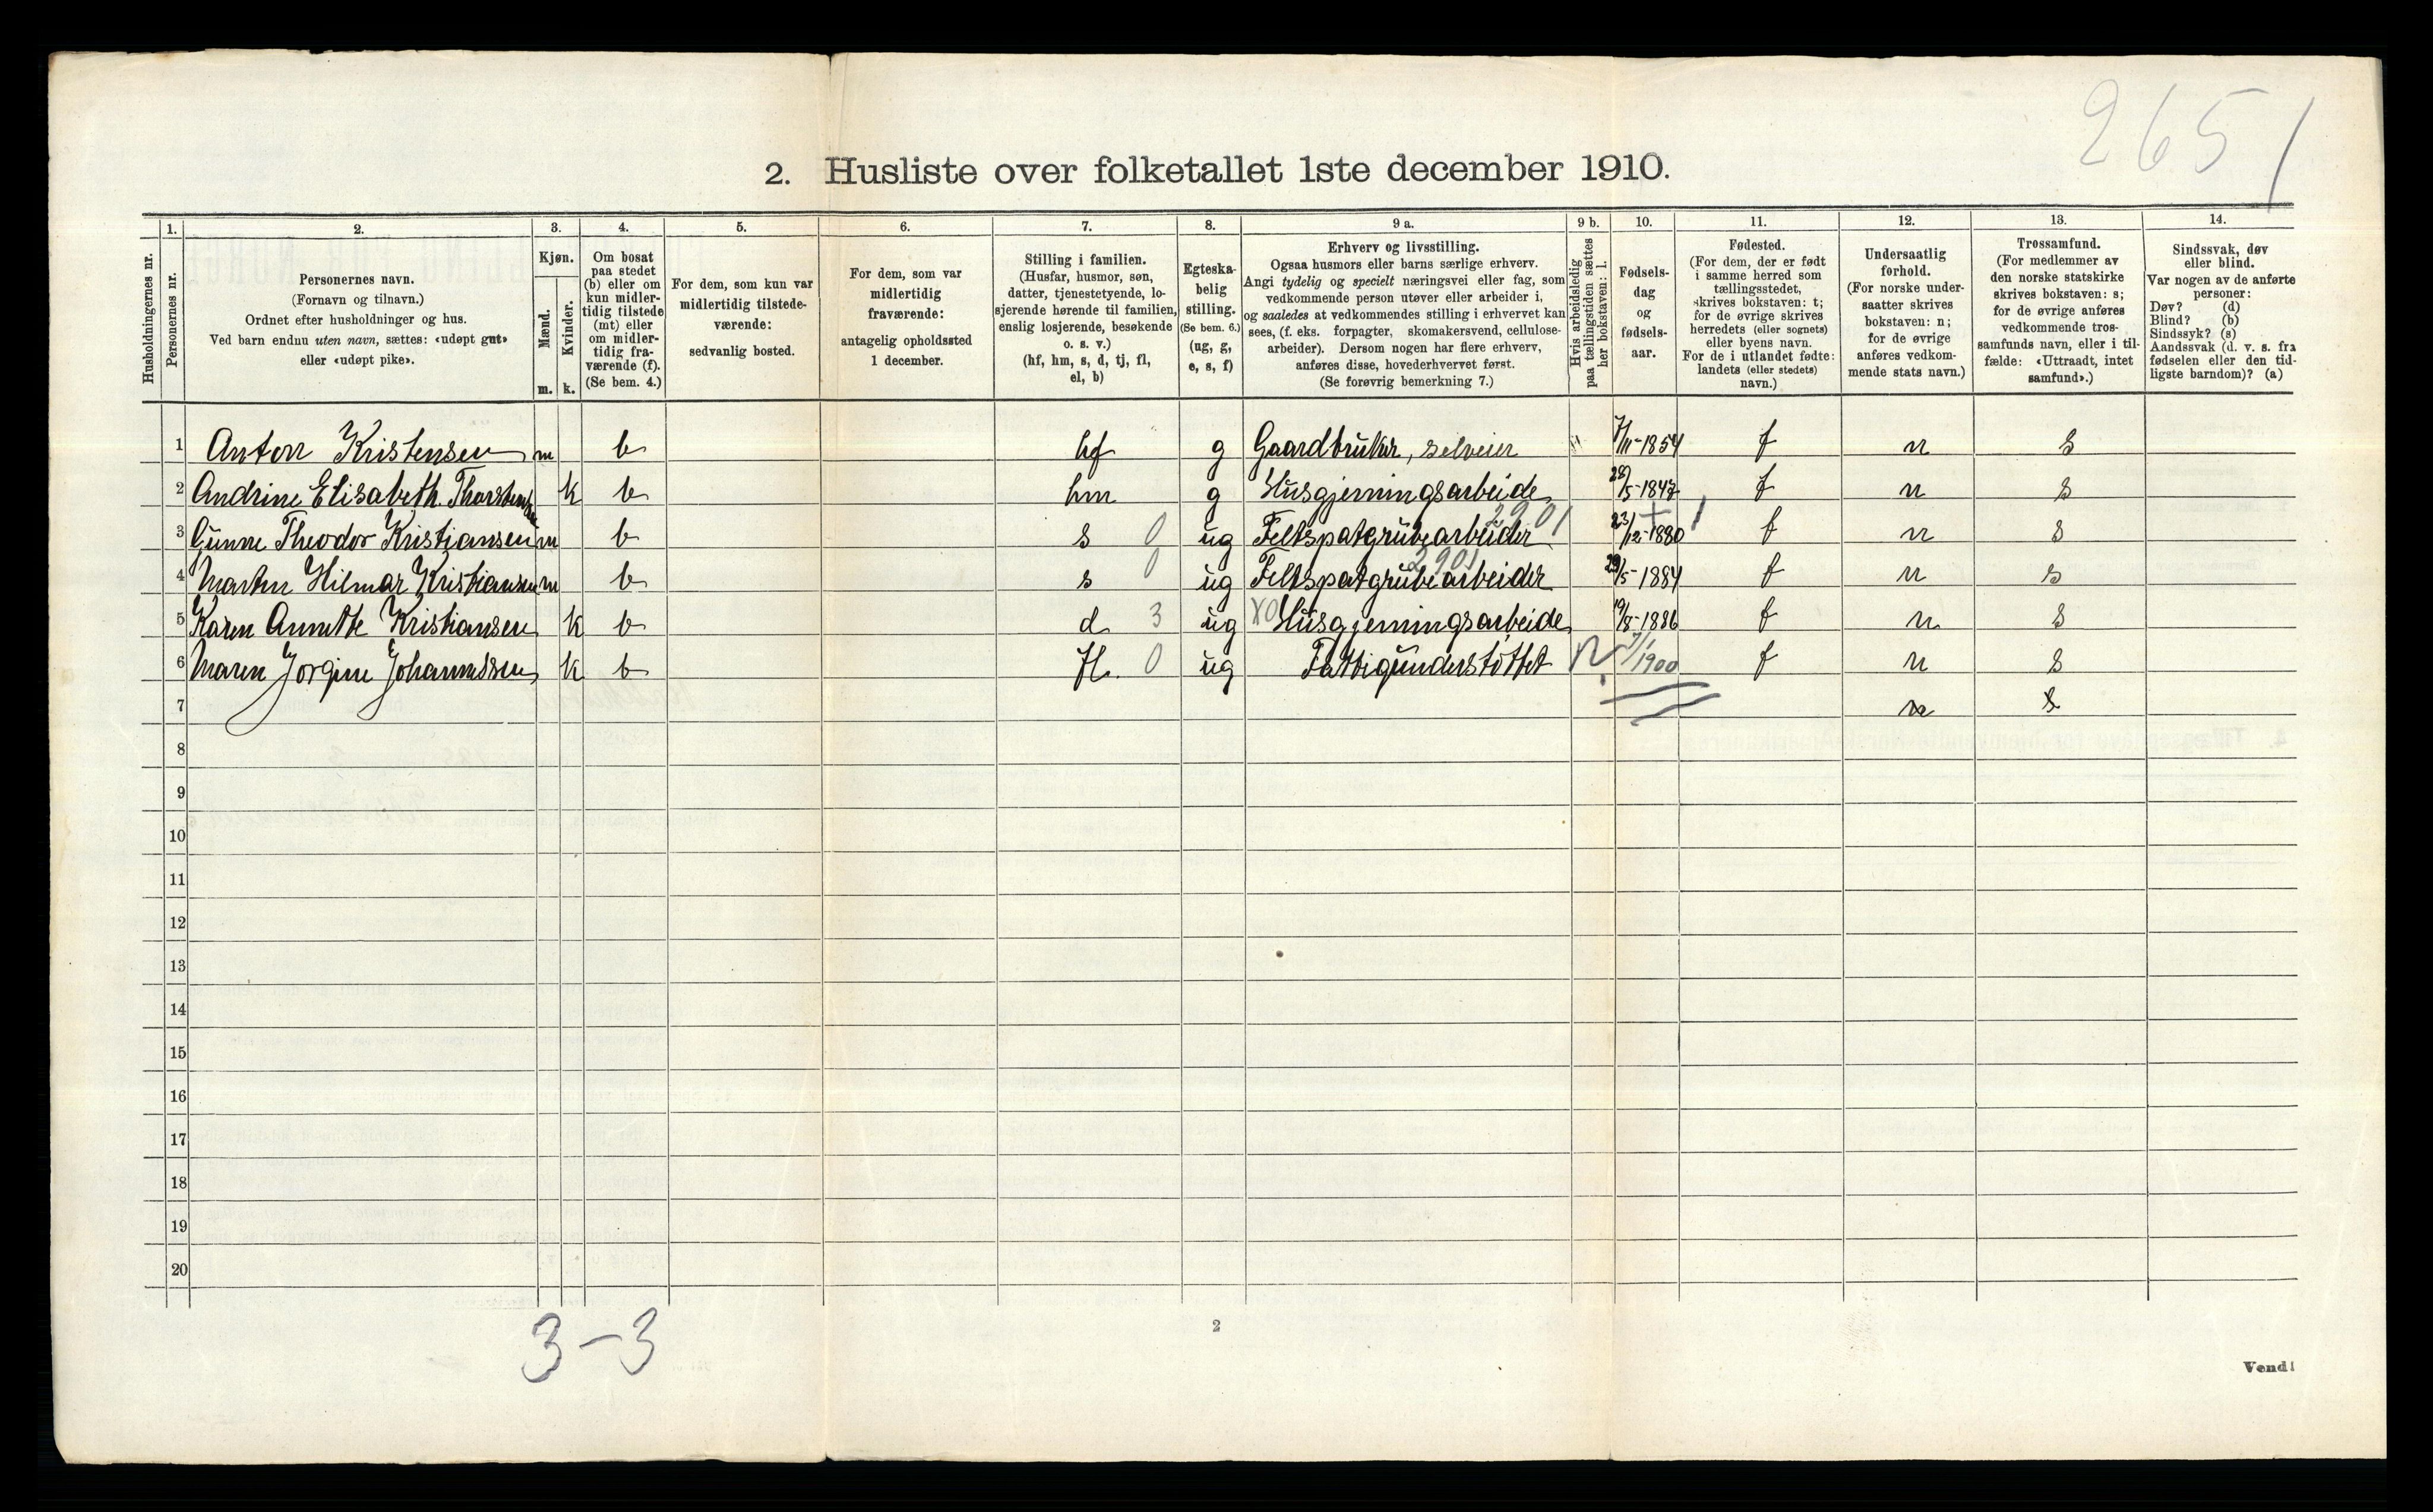 2651
2. Husliste over folketallet 1ste december 1910.
1. 2. 3. 4. 5. 6. 7. 8. 9 a. 9 b. 10. 11. 12. 13. 14.
Husholdningernes nr.
Personernes nr.
Personernes navn.
(Fornavn og tilnavn.)
Ordnet efter husholdninger og hus.
Ved barn endnu uten navn, sættes: «udøpt gut»
eller «udøpt pike».
Kjøn.
Mænd.
m.
Kvinder.
k.
Om bosat
paa stedet
(b) eller om
kun midler-
tidig tilstede
(mt) eller
om midler-
tidig fra-
værende (f).
(Se bem. 4.)
For dem, som kun var
midlertidig tilstede-
værende:
sedvanlig bosted.
For dem, som var
midlertidig
fraværende:
antagelig opholdssted
1 december.
Stilling i familien.
(Husfar, husmor, søn,
datter, tjenestetyende, lo-
sjerende hørende til familien,
enslig losjerende, besøkende
o. s. v.)
(hf, hm, s, d, tj, fl,
el, b)
Egteska-
belig
stilling.
(Se bem. 6.)
(ug, g,
e, s, f)
Erhverv og livsstilling.
Ogsaa husmors eller barns særlige erhverv.
Angi tydelig og specielt næringsvei eller fag, som
vedkommende person utøver eller arbeider i,
og saaledes at vedkommendes stilling i erhvervet kan
sees, (f. eks. forpagter, skomakersvend, cellulose-
arbeider). Dersom nogen har flere erhverv,
anføres disse, hovederhvervet først.
(Se forøvrig bemerkning 7.)
Hvis arbeidsledig
paa tællingstiden sættes
her bokstaven: l.
Fødsels-
dag
og
fødsels-
aar.
Fødested.
(For dem, der er født
i samme herred som
tællingsstedet,
skrives bokstaven: t;
for de øvrige skrives
herredets (eller sognets)
eller byens navn.
For de i utlandet fødte:
landets (eller stedets)
navn.)
Undersaatlig
forhold.
(For norske under-
saatter skrives
bokstaven: n;
for de øvrige
anføres vedkom-
mende stats navn.)
Trossamfund.
(For medlemmer av
den norske statskirke
skrives bokstaven: s;
for de øvrige anføres
vedkommende tros-
samfunds navn, eller i til-
fælde: «Uttraadt, intet
samfund».)
Sindssvak, døv
eller blind.
Var nogen av de anførte
personer:
Døv? (d)
Blind? (b)
Sindssyk? (s)
Aandssvak (d. v. s. fra
fødselen eller den tid-
ligste barndom)? (a)
1 Anton Kristensen m b hf g Gaardbruker, selveier 7/11-1854 t n s
2 Andrine Elisabeth k b hm g Husgjerningsarbeide 28/5-1847 t n s
3 Gunne Theodor Kristiansen m b s 0 ug Feltspatgrubearbeider 2901 23/12-1880 t n s
4 Martin Hilmar Kristiansen m b s 0 ug Feltspatgrubearbeider 2901 29/5-1884 t n s
5 Karen Annette Kristiansen k b d 3 ug X0 Husgjerningsarbeide 19/8-1886 t n s
6 Maren Jorgine Johannessen k b fl. 0 ug Fattigunderstøttet 7/1 1900 t n s
7 n s
8
9
10
11
12
13
14
15
16
17
18
19
20
3-3
2
Vend!